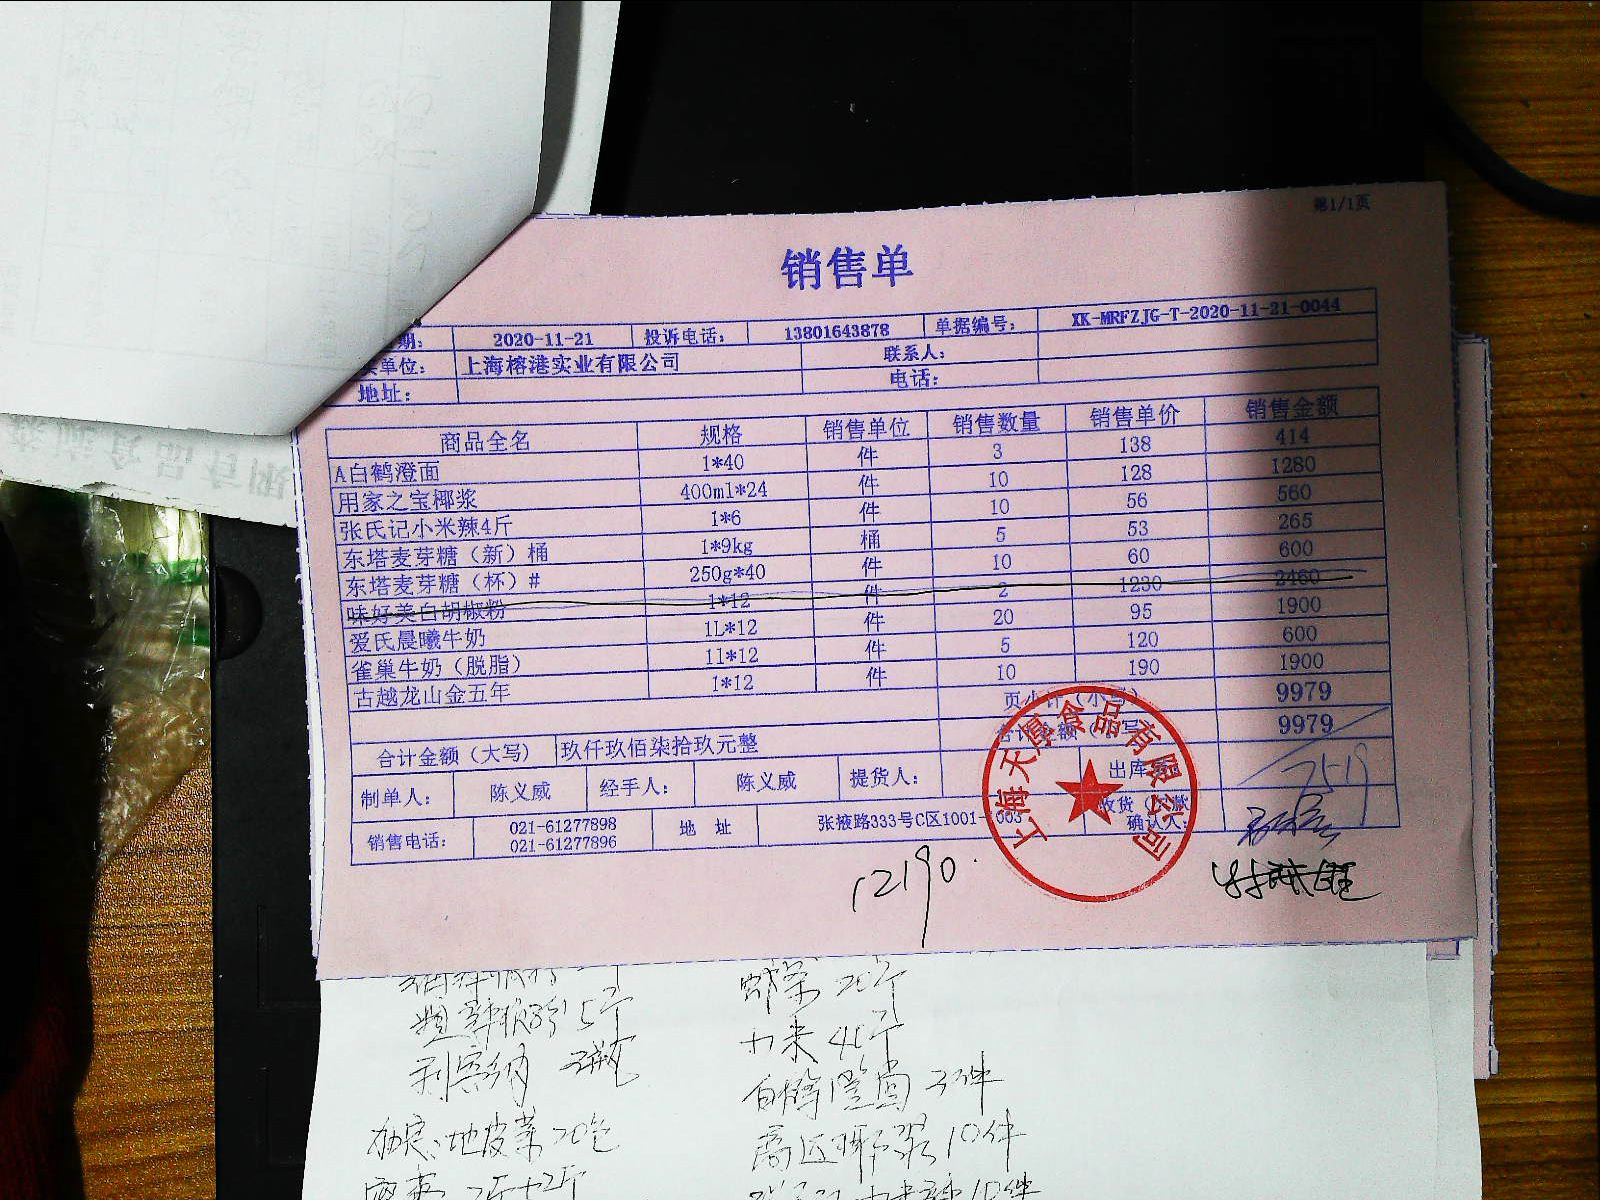 第1/1页
销售单
期： 2020-11-21 投诉电话： 13801643878 单据编号： XK-MRFZJG-T-2020-11-21-0044
单位： 上海榕港实业有限公司 联系人：
地址： 电话：
商品全名 规格 销售单位 销售数量 销售单价 销售金额
A白鹤澄面 1*40 件 3 138 414
用家之宝椰浆 400ml*24 件 10 128 1280
张氏记小米辣4斤 1*6 件 10 56 560
东塔麦芽糖（新）桶 1*9kg 桶 5 53 265
东塔麦芽糖（杯）# 250g*40 件 10 60 600
味好美白胡椒粉 1*12 件 2 1230 2460
爱氏晨曦牛奶 1L*12 件 20 95 1900
雀巢牛奶（脱脂） 1l*12 件 5 120 600
古越龙山金五年 1*12 件 10 190 1900
页小计（小写） 9979
合计金额（大写） 玖仟玖佰柒拾玖元整 合计金额（小写） 9979
7519
制单人： 陈义威 经手人： 陈义威 提货人： 出库
销售电话： 021-61277898 地 址 张掖路333号C区1001-1003 收货（款
021-61277896 确认人：
上海天厚食品有限公司
12190
5个
20个
利宾纳 3瓶
小米 4个
白鹤澄面 3件
地皮菜20包
高达椰浆10件
10件